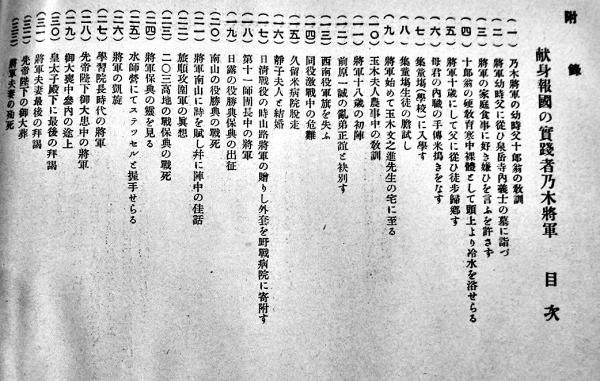 附錄
献身報國の實踐者乃木將軍 目次
(一) 乃木將軍の幼時父十郎翁の敎訓
(二) 將軍幼時父に從ひ泉岳寺內義士の墓に詣づ
(三) 將軍の家庭食事に好き嫌ひを言ふを許さず
(四) 十郎翁の硬敎育寒中裸體として頭上より冷水を浴せらる
(五) 將軍十歲にして父に從ひ徒步歸鄕す
(六) 母君の內職の手傳米搗きをなす
(七) 集童塲(學校)に入學す
(八) 集童塲生徒の膽試し
(九) 將軍始めて玉木文之進先生の宅に至る
(一〇) 玉木夫人農事中の敎訓
(一一) 將軍十八歲の初陣
(一二) 前原一誠の亂弟正誼と袂別す
(一三) 西南役軍旗を失ふ
(一四) 同役激戰中の危難
(一五) 久留米病院脫走
(一六) 靜子夫人と結婚
(一七) 日淸戰役の時山路將軍の贈りし外套を野戰病院に寄附す
(一八) 第十一師團長中の將軍
(一九) 日露の役勝典保典の出征
(二〇) 南山の役勝典の戰死
(二一) 將軍南山に詩を賦し幷に陣中の佳話
(二二) 旅順攻圍軍の異想
(二三) 二〇三高地の戰保典の戰死
(二四) 將軍保典の靈を見る
(二五) 水師營にてステッセルと握手せらる
(二六) 將軍の凱旋
(二七) 學習院長時代の將軍
(二八) 先帝陛下御大患中の將軍
(二九) 御大喪中參內の途上
(三〇) 皇太子殿下に最後の拜謁
(三一) 將軍夫妻最後の拜謁
(三二) 先帝陛下の御大葬
(三三) 將軍夫妻の殉死